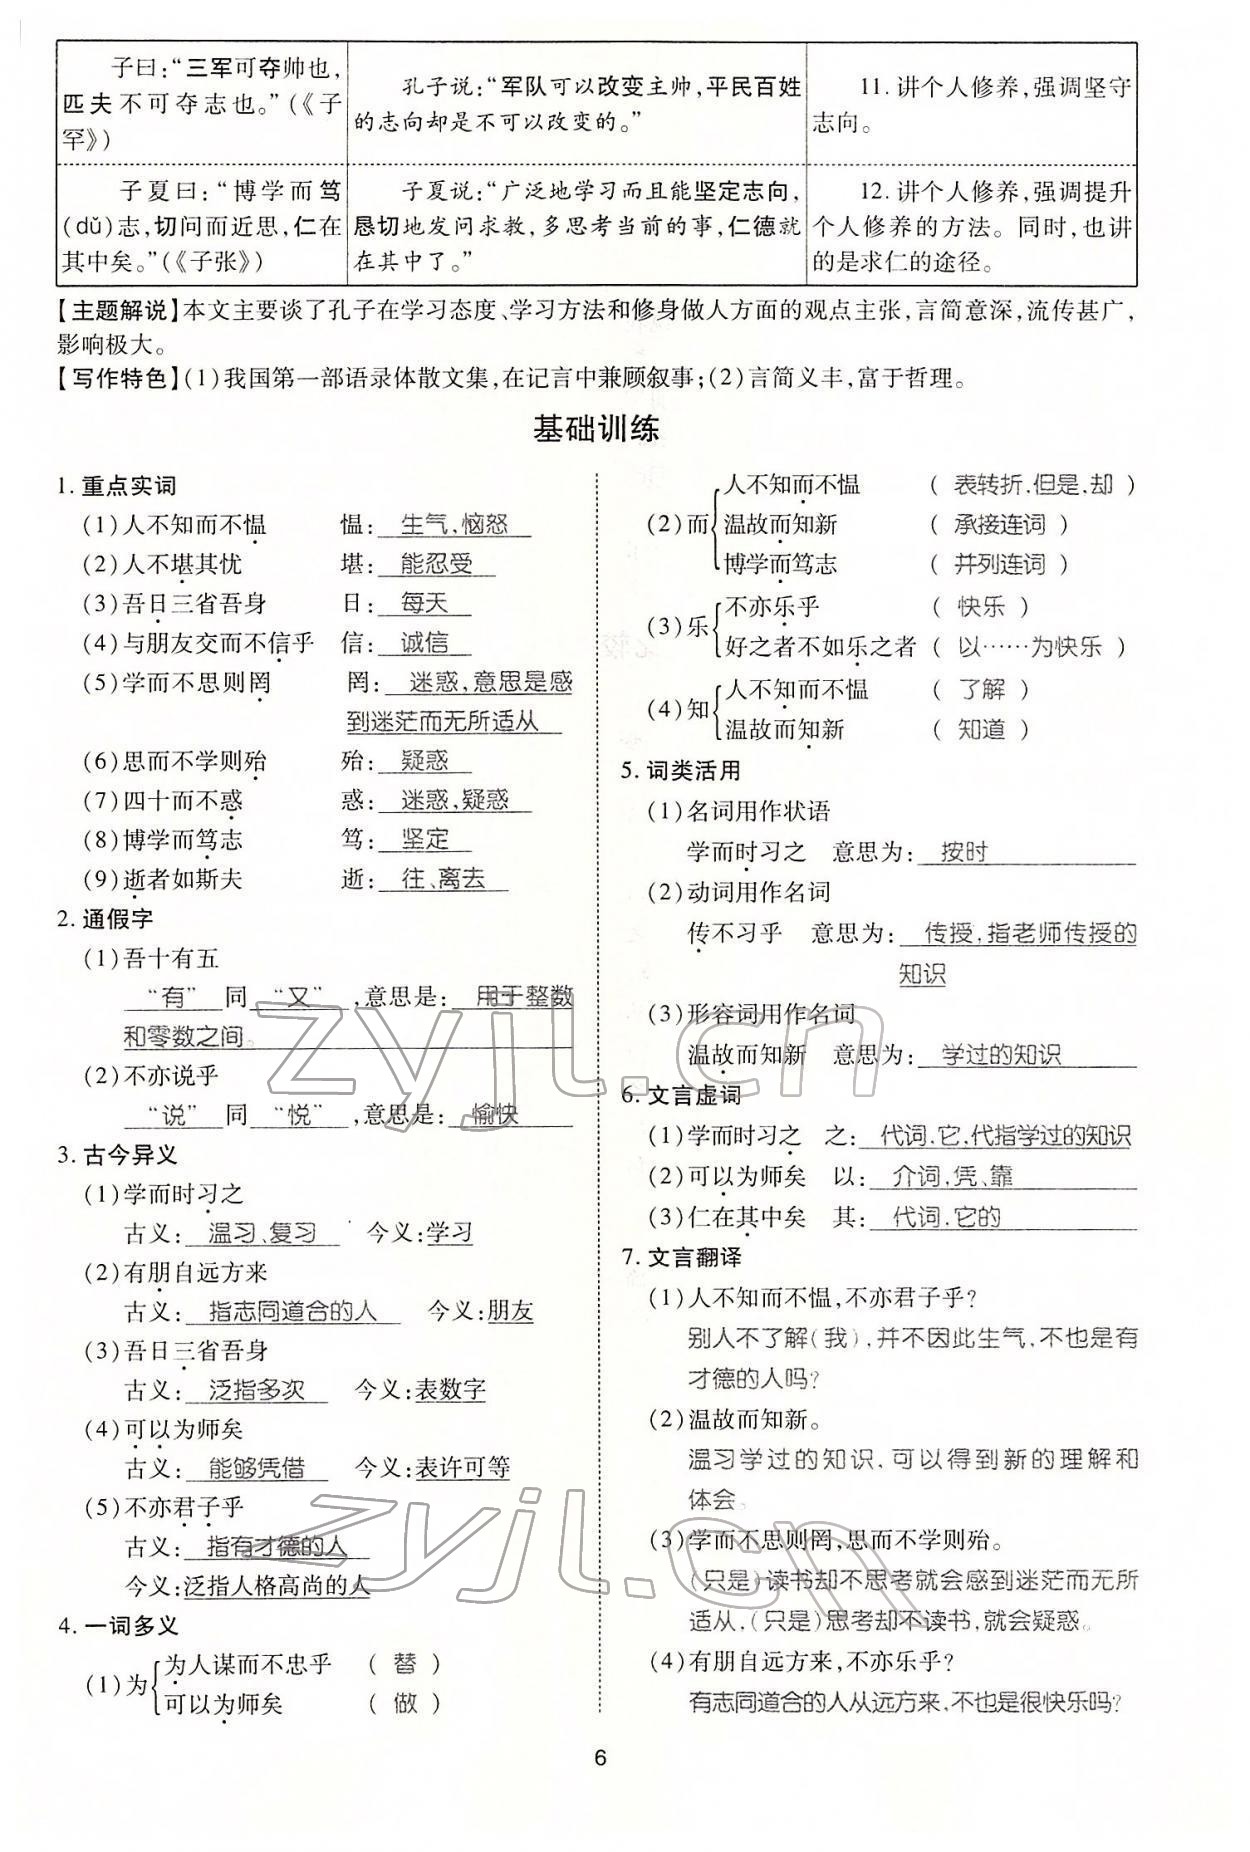 子曰:“三军可夺帅也,
匹夫不可夺志也。”(《子
罕》)
孔子说:“军队可以改变主帅,平民百姓
的志向却是不可以改变的。”
11. 讲个人修养,强调坚守
志向。
子夏曰:“博学而笃
(dǔ)志,切问而近思,仁在
其中矣。”(《子张》)
子夏说:“广泛地学习而且能坚定志向,
恳切地发问求教,多思考当前的事,仁德就
在其中了。”
12. 讲个人修养,强调提升
个人修养的方法。同时,也讲
的是求仁的途径。
【主题解说】本文主要谈了孔子在学习态度、学习方法和修身做人方面的观点主张,言简意深,流传甚广,
影响极大。
【写作特色】(1)我国第一部语录体散文集,在记言中兼顾叙事;(2)言简义丰,富于哲理。
基础训练
1. 重点实词
(1)人不知而不愠 愠: 生气,恼怒
(2)人不堪其忧 堪: 能忍受
(3)吾日三省吾身 日: 每天
(4)与朋友交而不信乎 信: 诚信
(5)学而不思则罔 罔: 迷惑,意思是感
到迷茫而无所适从
(6)思而不学则殆 殆: 疑惑
(7)四十而不惑 惑: 迷惑,疑惑
(8)博学而笃志 笃: 坚定
(9)逝者如斯夫 逝: 往、离去
2. 通假字
(1)吾十有五
“有” 同 “又” ,意思是: 用于整数
和零数之间。
(2)不亦说乎
“说” 同 “悦” ,意思是: 愉快
3. 古今异义
(1)学而时习之
古义: 温习、复习 今义:学习
(2)有朋自远方来
古义: 指志同道合的人 今义:朋友
(3)吾日三省吾身
古义: 泛指多次 今义:表数字
(4)可以为师矣
古义: 能够凭借 今义:表许可等
(5)不亦君子乎
古义: 指有才德的人
今义:泛指人格高尚的人
4. 一词多义
(1)为
为人谋而不忠乎 ( 替 )
可以为师矣 ( 做 )
(2)而
人不知而不愠 ( 表转折,但是,却 )
温故而知新 ( 承接连词 )
博学而笃志 ( 并列连词 )
(3)乐
不亦乐乎 ( 快乐 )
好之者不如乐之者 ( 以……为快乐 )
(4)知
人不知而不愠 ( 了解 )
温故而知新 ( 知道 )
5. 词类活用
(1)名词用作状语
学而时习之 意思为: 按时
(2)动词用作名词
传不习乎 意思为: 传授,指老师传授的
知识
(3)形容词用作名词
温故而知新 意思为: 学过的知识
6. 文言虚词
(1)学而时习之 之: 代词,它,代指学过的知识
(2)可以为师矣 以: 介词,凭、靠
(3)仁在其中矣 其: 代词,它的
7. 文言翻译
(1)人不知而不愠,不亦君子乎?
别人不了解(我),并不因此生气,不也是有
才德的人吗?
(2)温故而知新。
温习学过的知识,可以得到新的理解和
体会。
(3)学而不思则罔,思而不学则殆。
(只是)读书却不思考就会感到迷茫而无所
适从,(只是)思考却不读书,就会疑惑。
(4)有朋自远方来,不亦乐乎?
有志同道合的人从远方来,不也是很快乐吗?
6
zyjl.cn
zyjl.cn